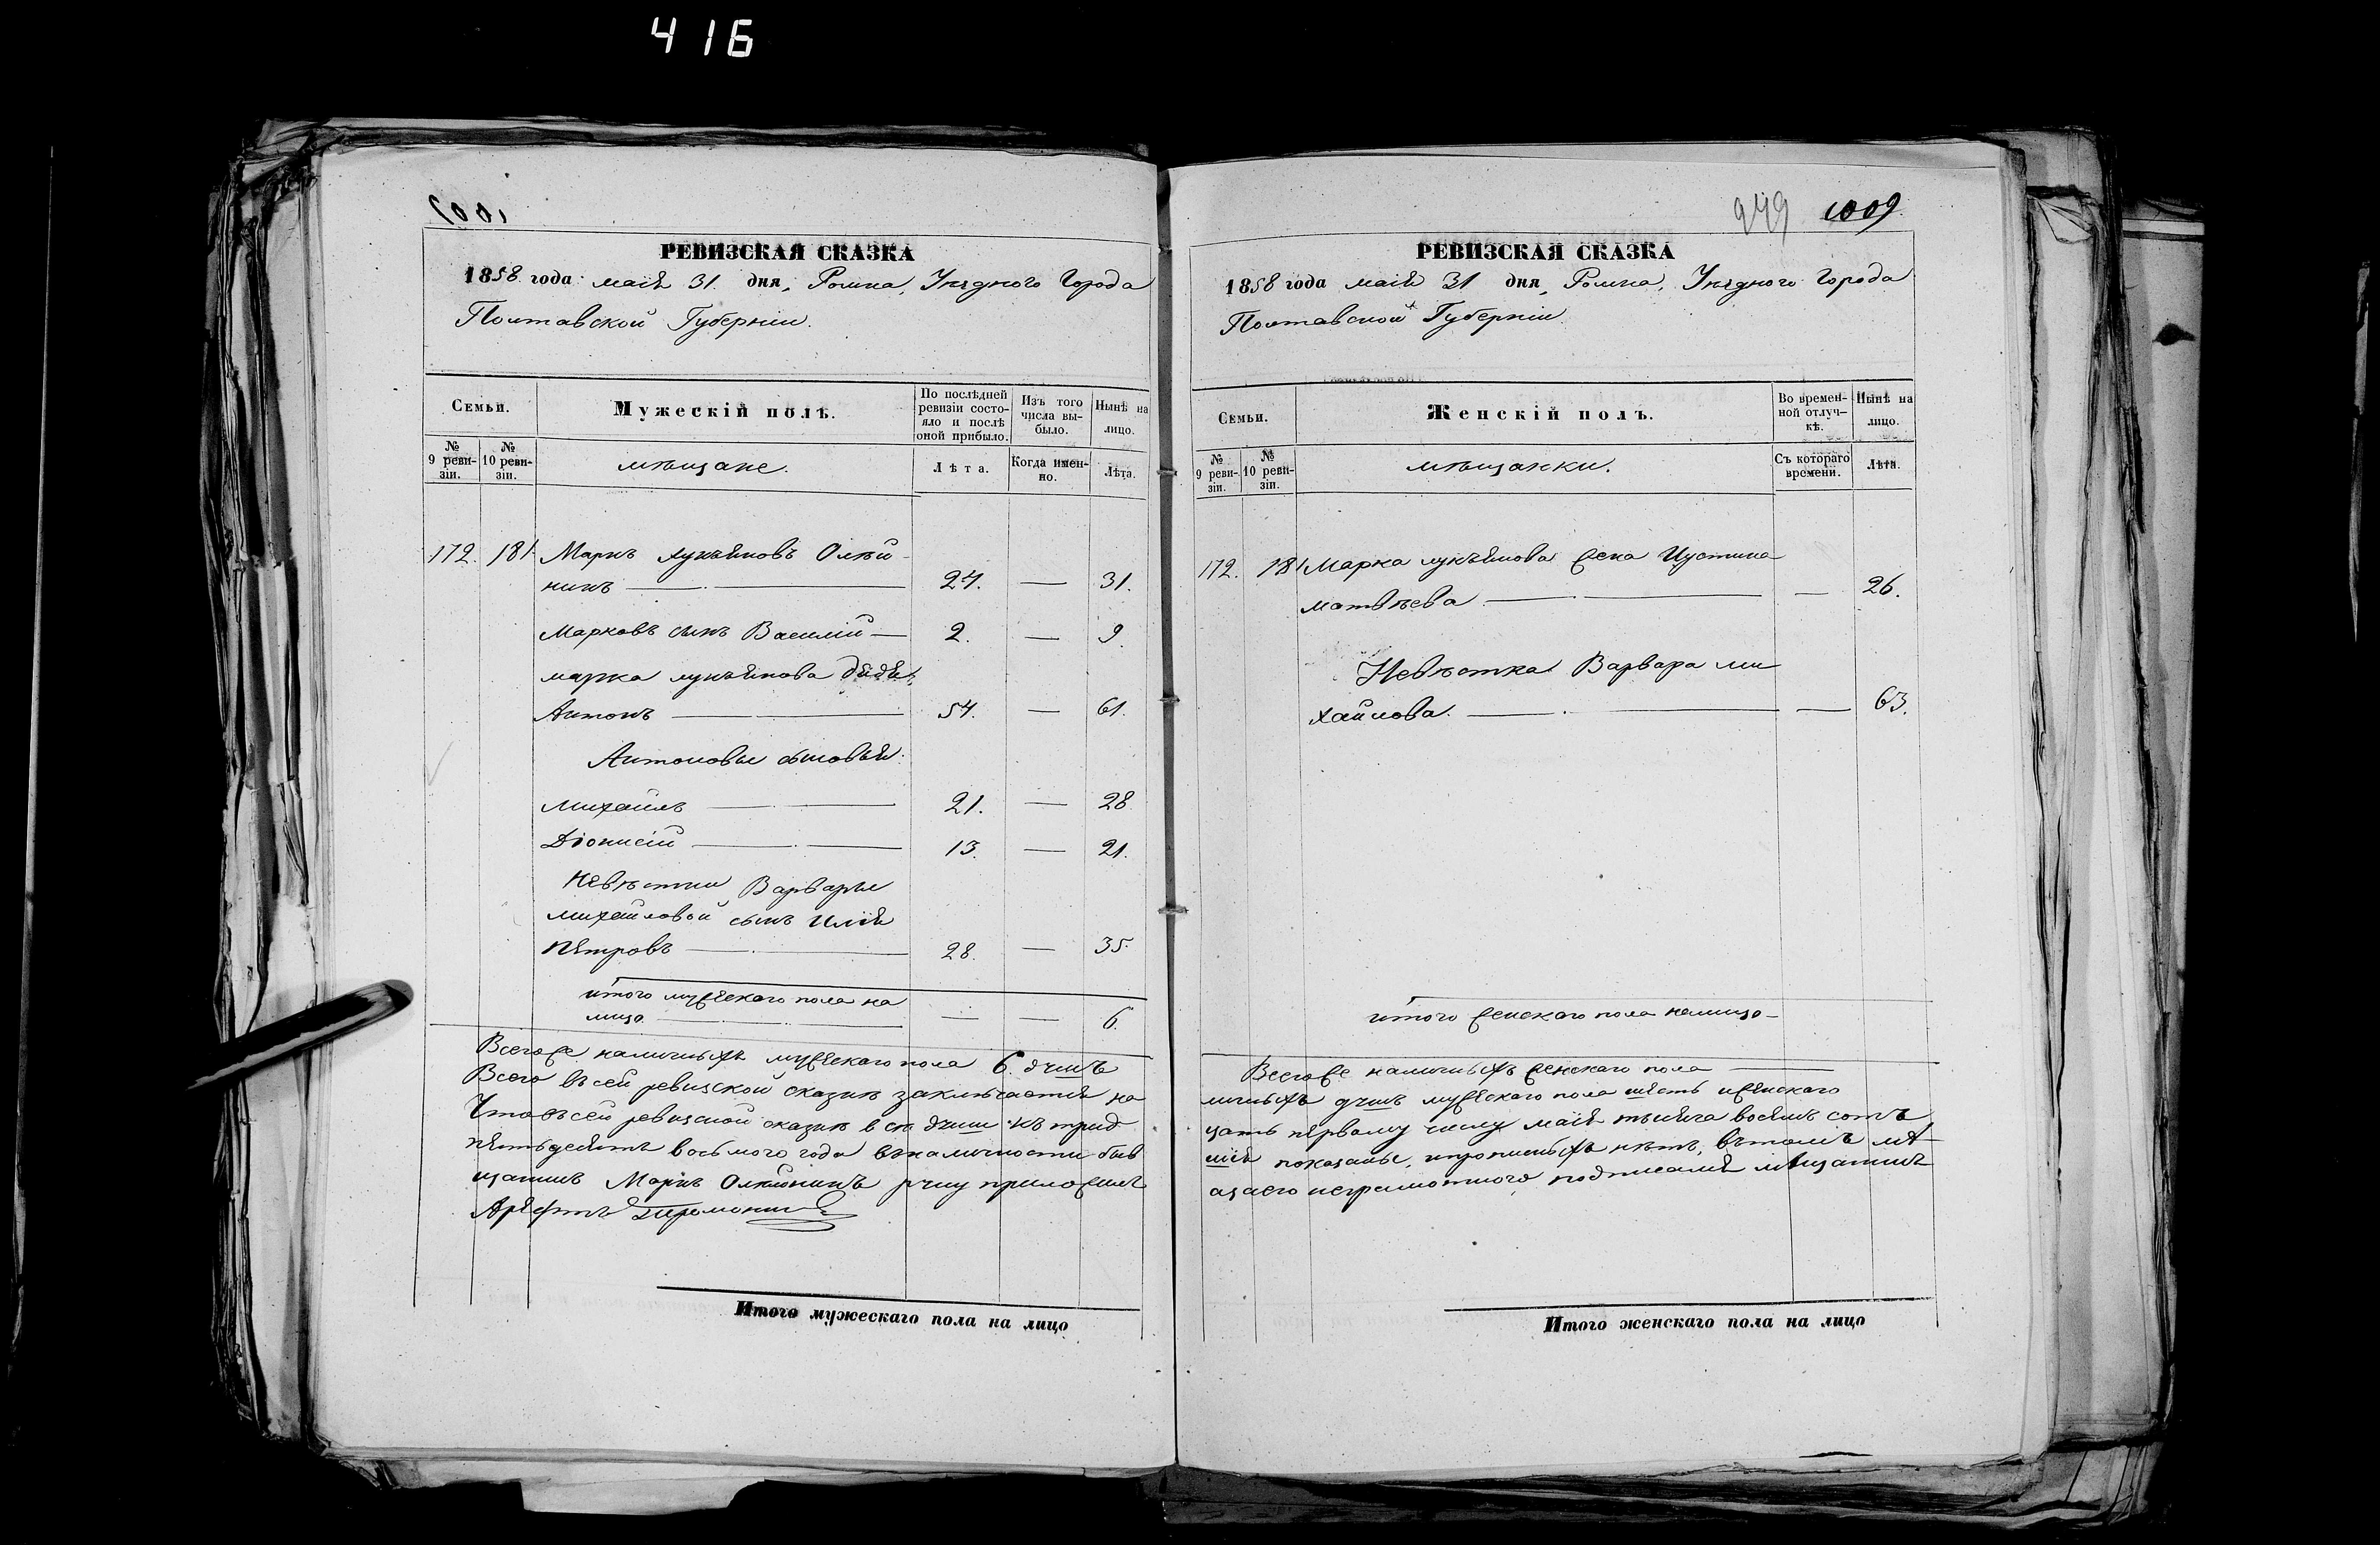 416
1001
РЕВИЗСКАЯ СКАЗКА
1858 года маія 31 дня, Ромна, Уѣзднаго Города
Полтавской Губерніи.
Семьи.
№ 9 ревизіи.
№ 10 ревизіи.
Мужескій полъ.
мѣщане.
По послѣдней ревизіи состояло и послѣ оной прибыло.
Лѣта.
Изъ того числа выбыло.
Когда именно.
Нынѣ на лицо.
Лѣта.
172. 181 Маркъ лукъяновъ Олѣй
никъ 24. — 31.
Марковъ сынъ Василій — 2. — 9.
марка лукъянова дядя,
Антонъ 54. — 61.
Антоновы сыновья.
Михаилъ 21. — 28
Діонисій 13. — 21.
Невѣстки Варвары
михайловой сынъ Илія
Петровъ 28. — 35.
итого мужескаго пола на
лицо — — 6.
Всегоже наличныхъ мужескаго пола 6. душъ
Всего въ сей ревизской сказкѣ заключается на
Что въ сей ревизской сказкѣ всѣ души къ трид
пятьдесятъ восьмого года въ наличности быв
щанинъ Маркъ Олейникъ руку приложилъ
Итого мужескаго пола на лицо
949 1009
РЕВИЗСКАЯ СКАЗКА
1858 года маія 31 дня, Ромна, Уѣзднаго Города
Полтавской Губерніи
Семьи.
№ 9 ревизіи.
№ 10 ревизіи.
Женскій полъ.
мѣщанки.
Во временной отлучкѣ.
Съ котораго времени.
Нынѣ на лицо.
Лѣта.
172. 181 Марка лукъянова жена Иустина
матвѣева — 26.
Невѣстка Варвара ми
хайлова. — 63.
итого женскаго пола налицо —
Всегоже наличныхъ женскаго пола
личныхъ душъ мужескаго пола шесть и женскаго
цать первому числу маія тысяча восемь сотъ
шія показаны, и прописныхъ нѣтъ, въ томъ мѣ
а за его неграмотного подписался мѣщанинъ
Итого женскаго пола на лицо